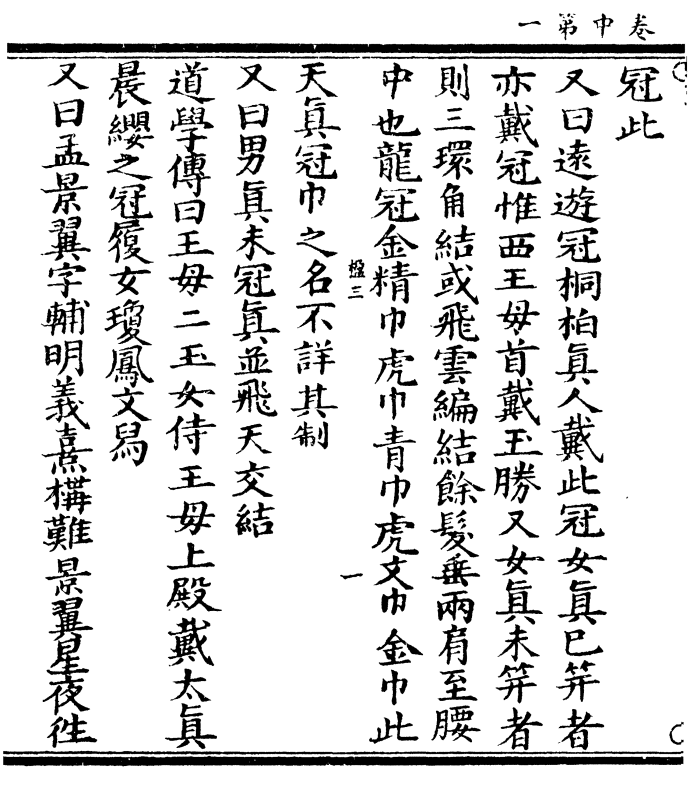 卷中第一
冠此
又曰遠遊冠桐柏真人戴此冠女真已笄者
亦戴冠惟西王母首戴玉勝又女真未笄者
則三環角結或飛雲編結餘髮垂兩肩至腰
中也龍冠金精巾虎巾青巾虎文巾金巾此
槛三
一
天真冠巾之名不詳其制
又曰男真未冠真並飛天交結
道學傳曰王母二玉女侍王母上殿戴太真
晨纓之冠履女瓊鳳文舄
又曰孟景翼字輔明義熹構難景翼星夜徃